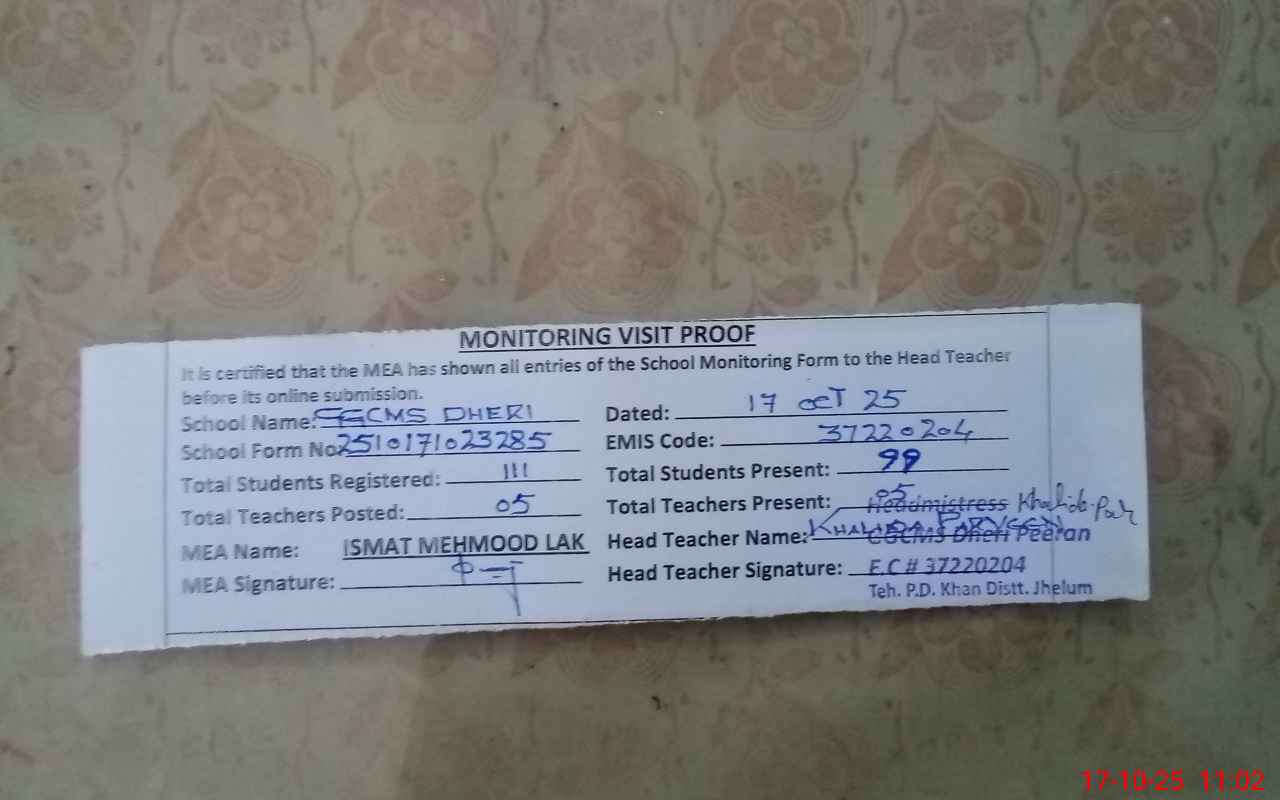 MONITORING VISIT PROOF
It is certified that the MEA has shown all entries of the School Monitoring Form to the Head Teacher
before its online submission.
School Name: GGCMS DHERI Dated: 17 OCT 25
School Form No. 2510171023285 EMIS Code: 37220204
Total Students Registered: 111 Total Students Present: 99
Total Teachers Posted: 05 Total Teachers Present: 05
Headmistress Khalida
MEA Name: ISMAT MEHMOOD LAK Head Teacher Name: KHALIDA PARVEEN
GGCMS Dheri Peeran
MEA Signature: Head Teacher Signature: E.C # 37220204
Teh. P.D. Khan Distt. Jhelum
17-10-25 11:02